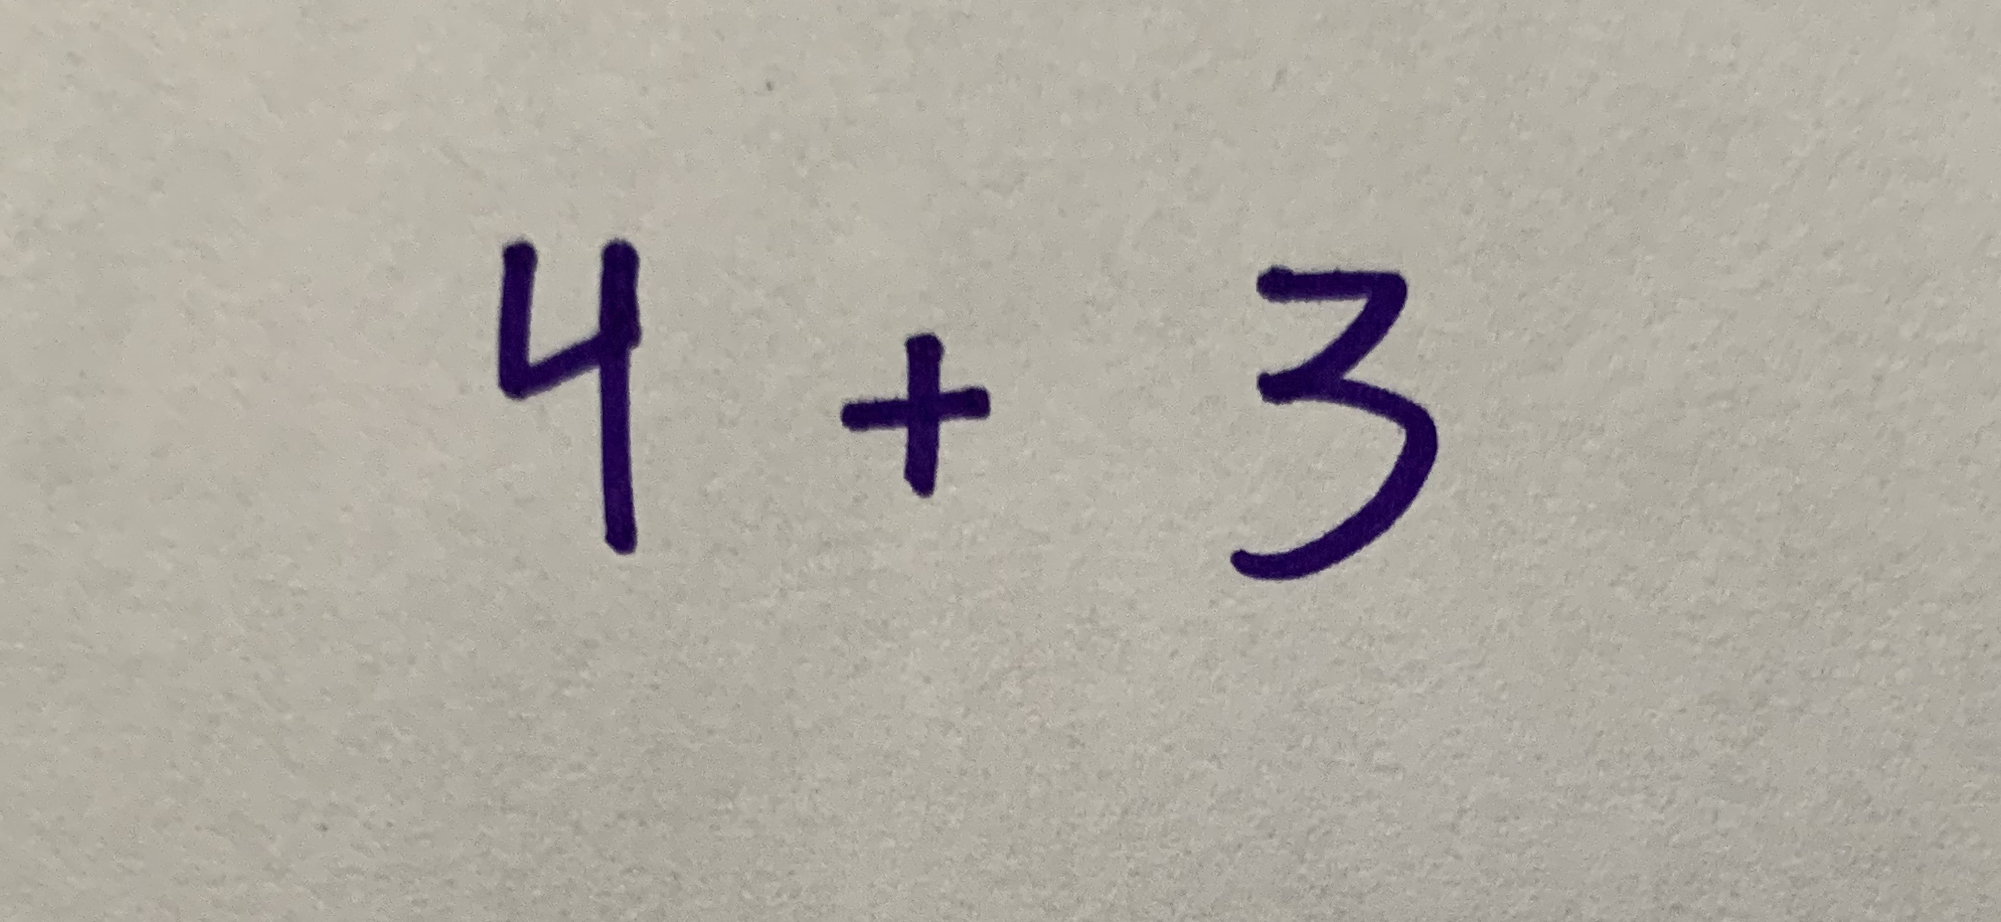 4 + 3